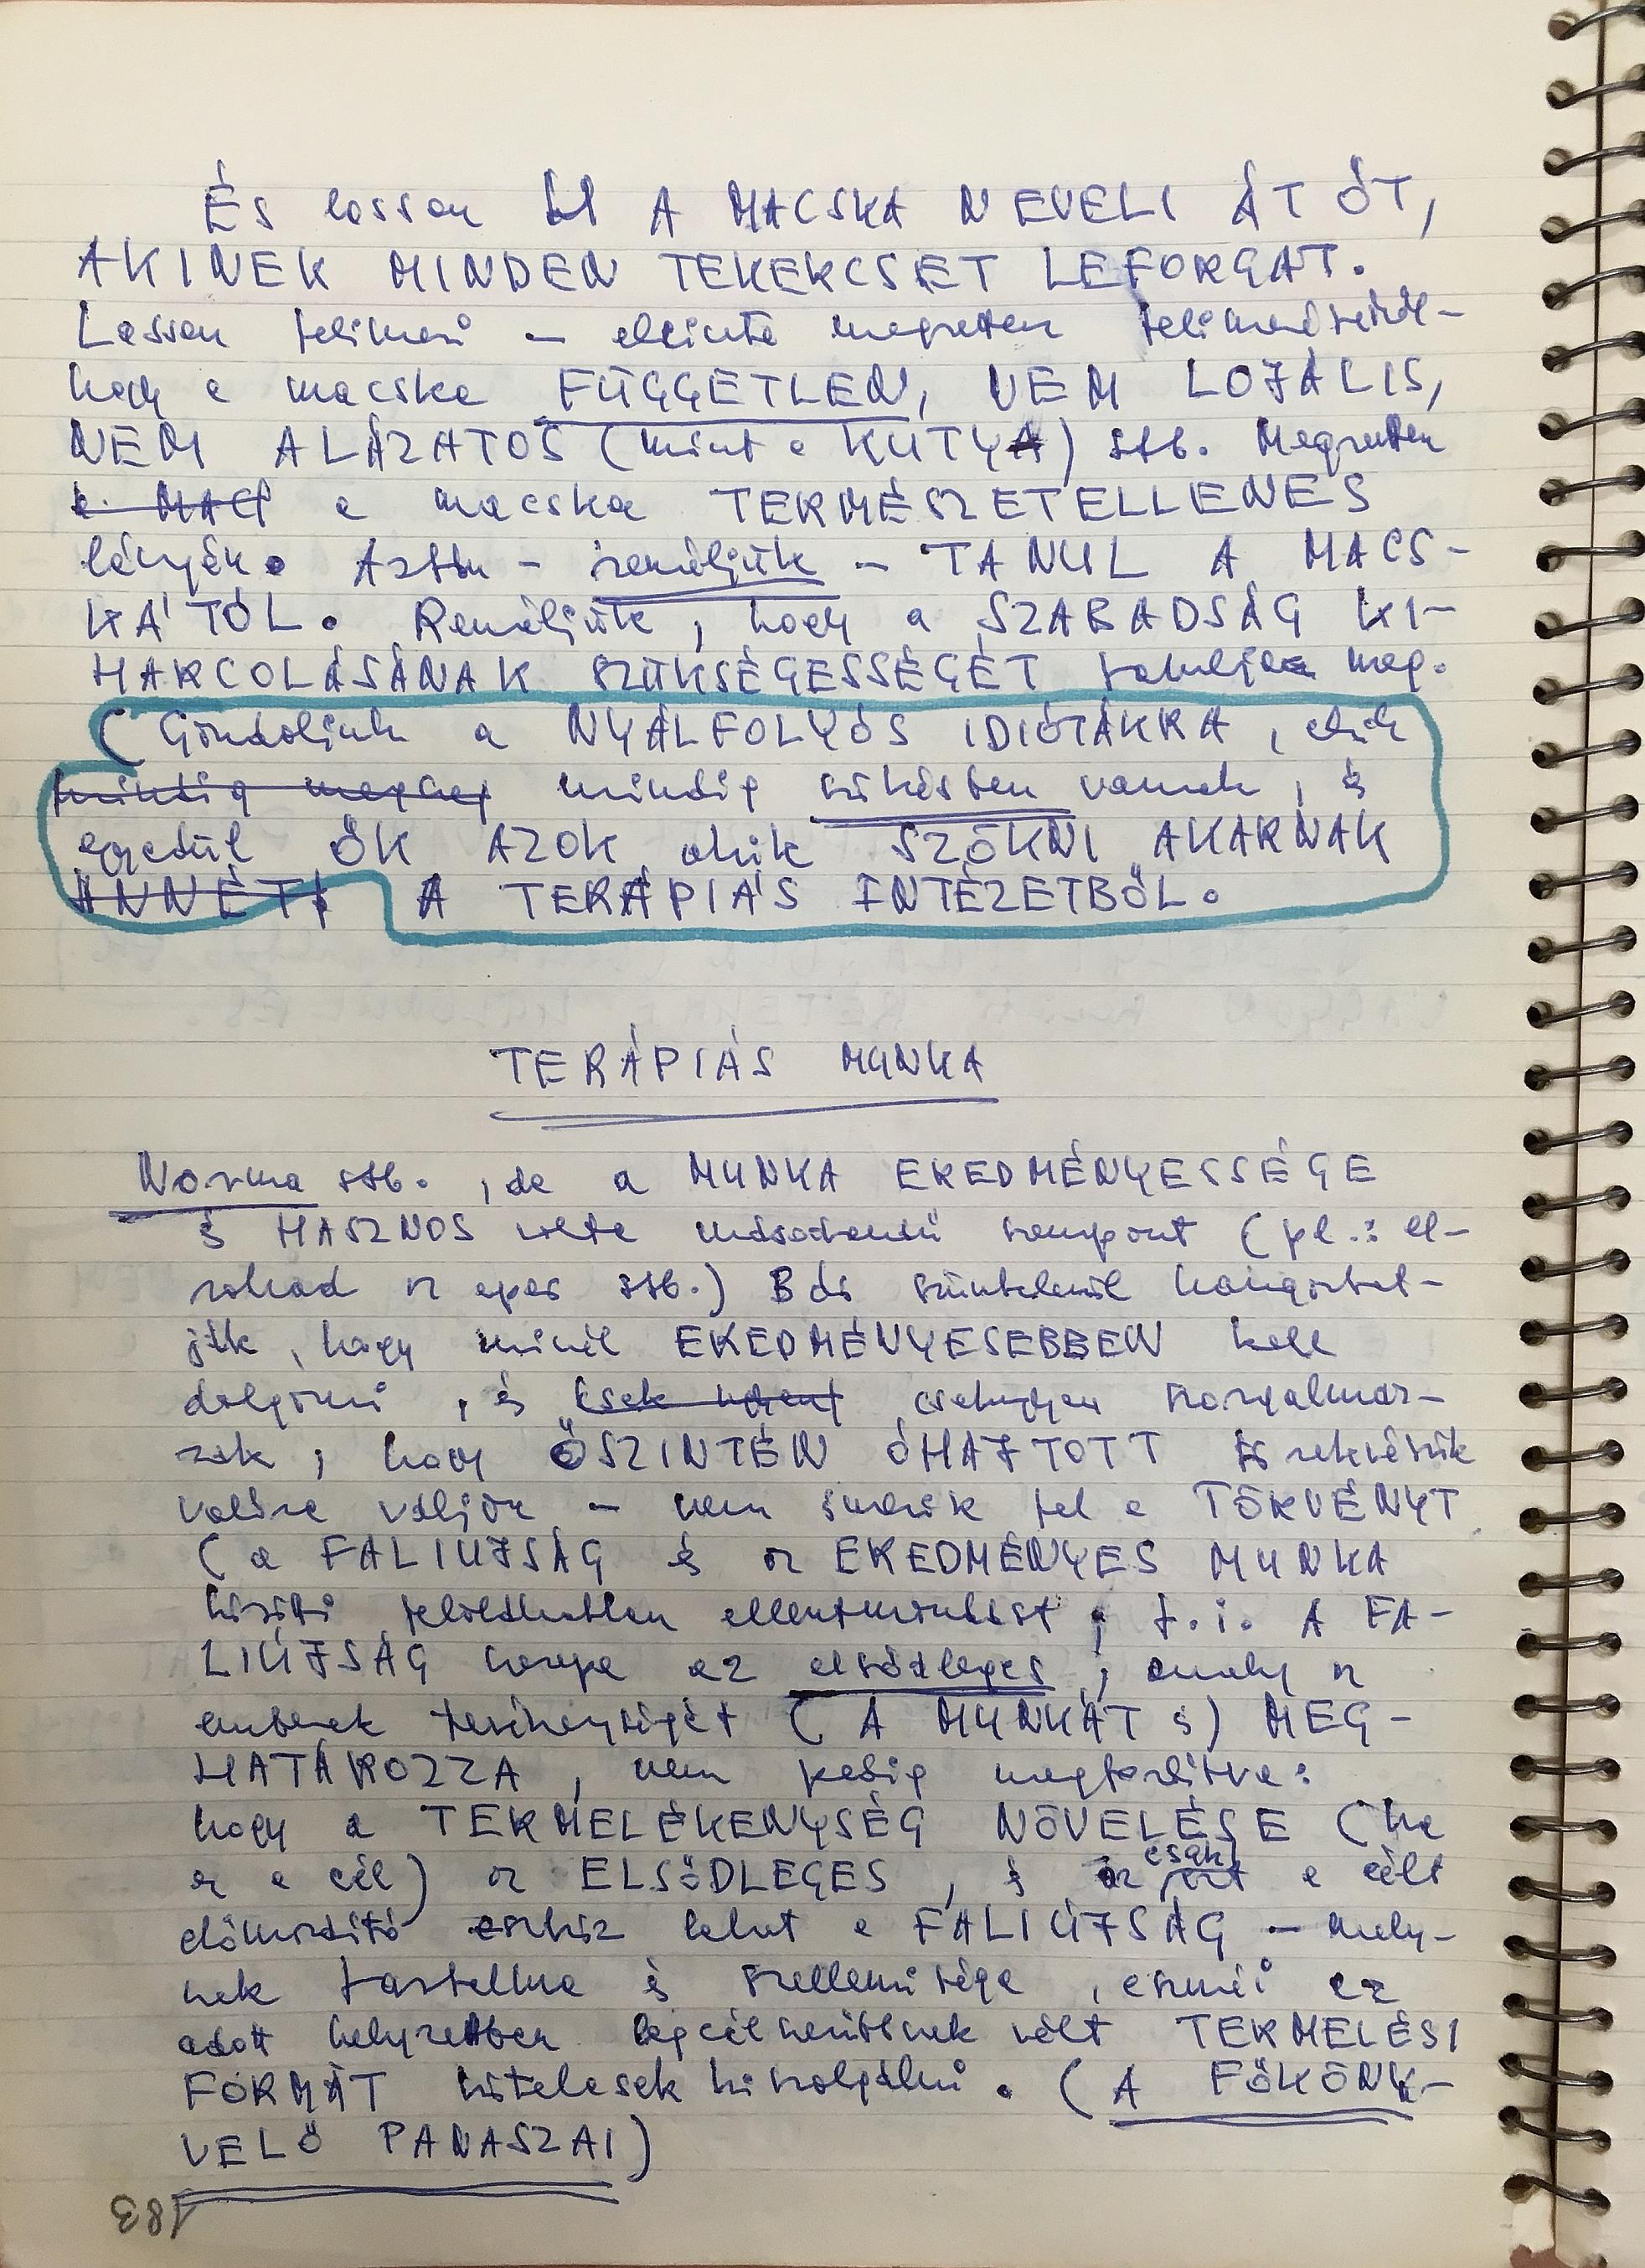 És lassan A MACSKA NEVELI ÁT ŐT,
AKINEK MINDEN TEKERCSET LEFORGAT.
Lassan felismeri – eleinte megretten felismerésétől –
hogy a macska FÜGGETLEN, NEM LOJÁLIS,
NEM ALÁZATOS (mint a KUTYA) stb. Megretten
a MACS a macska TERMÉSZETELLENES
lényén. Aztán – reméljük – TANUL A MACS-
KÁTÓL. Reméljük, hogy a SZABADSÁG KI-
HARCOLÁSÁNAK SZÜKSÉGESSÉGÉT tanulja meg.
(Gondoljunk a NYÁLFOLYÓS IDIÓTÁKRA, akik
mindig mindig szökésben vannak, és
egyedül ŐK AZOK akik SZÖKNI AKARNAK
A TERÁPIÁS INTÉZETBŐL.
TERÁPIÁS MUNKA
Norma stb., de a MUNKA EREDMÉNYESSÉGE
és HASZNOS volta másodrendű szempont (pl.: el-
rohad az eper stb.) Bár szüntelenül hangoztat-
ják, hogy minél EREDMÉNYESEBBEN kell
dolgozni, és csak csakugyan szorgalmaz-
zák, hogy ŐSZINTÉN ÓHAJTOTT
valóra váljon – nem ismerik fel a TÖRVÉNYT
(a FALIÚJSÁG és az EREDMÉNYES MUNKA
közötti feloldhatatlan ellentmondást; t.i. A FA-
LIÚJSÁG szerepe az elsődleges, amely az
emberek tevékenységét (A MUNKÁT is) MEG-
HATÁROZZA, nem pedig megfordítva:
hogy a TERMELÉKENYSÉG NÖVELÉSE (ha
ez a cél) az ELSŐDLEGES, és csak ezt a célt
előmozdító eszköz lehet a FALIÚJSÁG – mely-
nek tartalma és szellemisége, eszméi az
adott helyzetben legcélszerűbbnek vélt TERMELÉSI
FORMÁT kötelesek kiszolgálni. (A FŐKÖNY-
VELŐ PANASZAI)
183